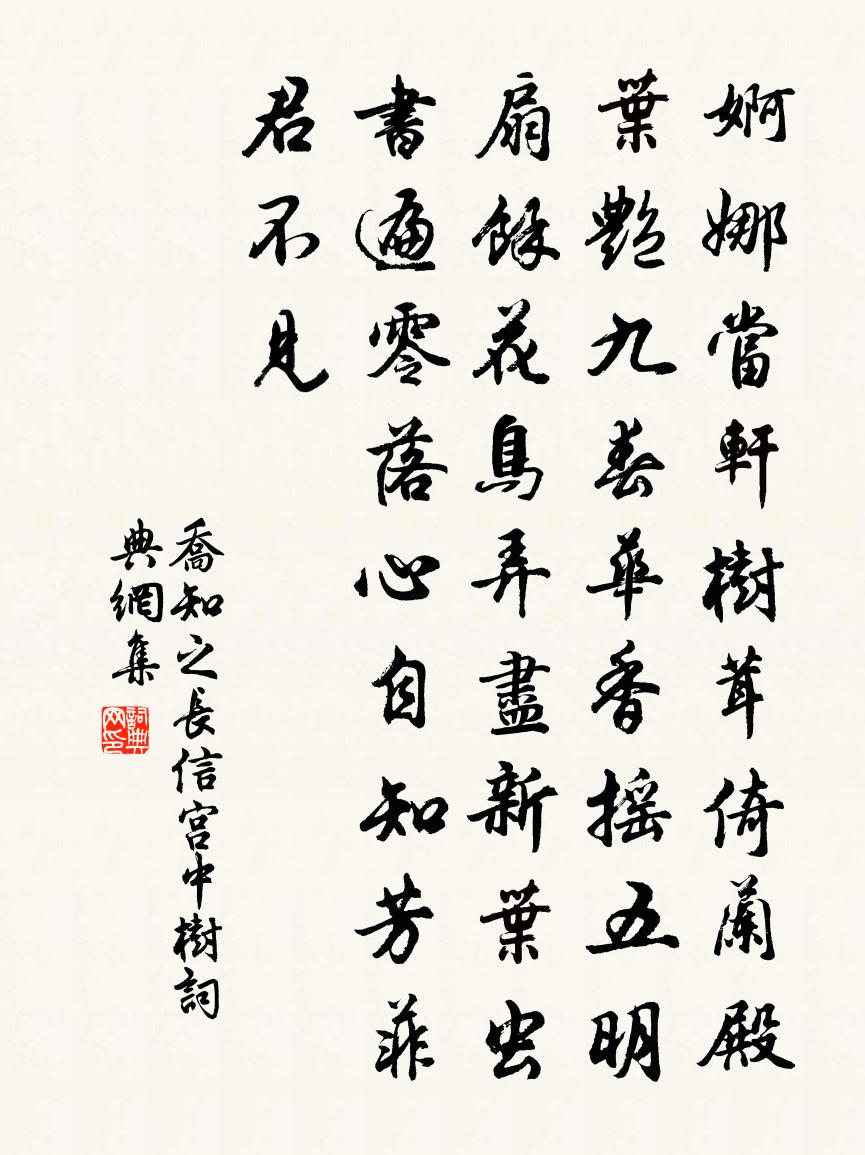 婀娜當軒樹茸茸倚蘭殿
葉艷九春華香搖五明
扇餘花鳥弄盡新葉虫
書遍零落心自知芳菲
君不見
喬知之長信宮中樹詞
典網集
詞典網印